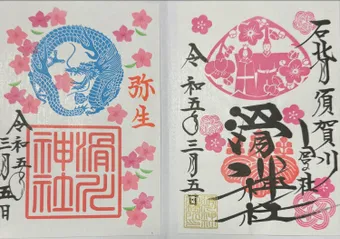 石背月 須賀川
総社
滑神社
令和五年三月五日
弥生
滑川神社
令和五年三月五日